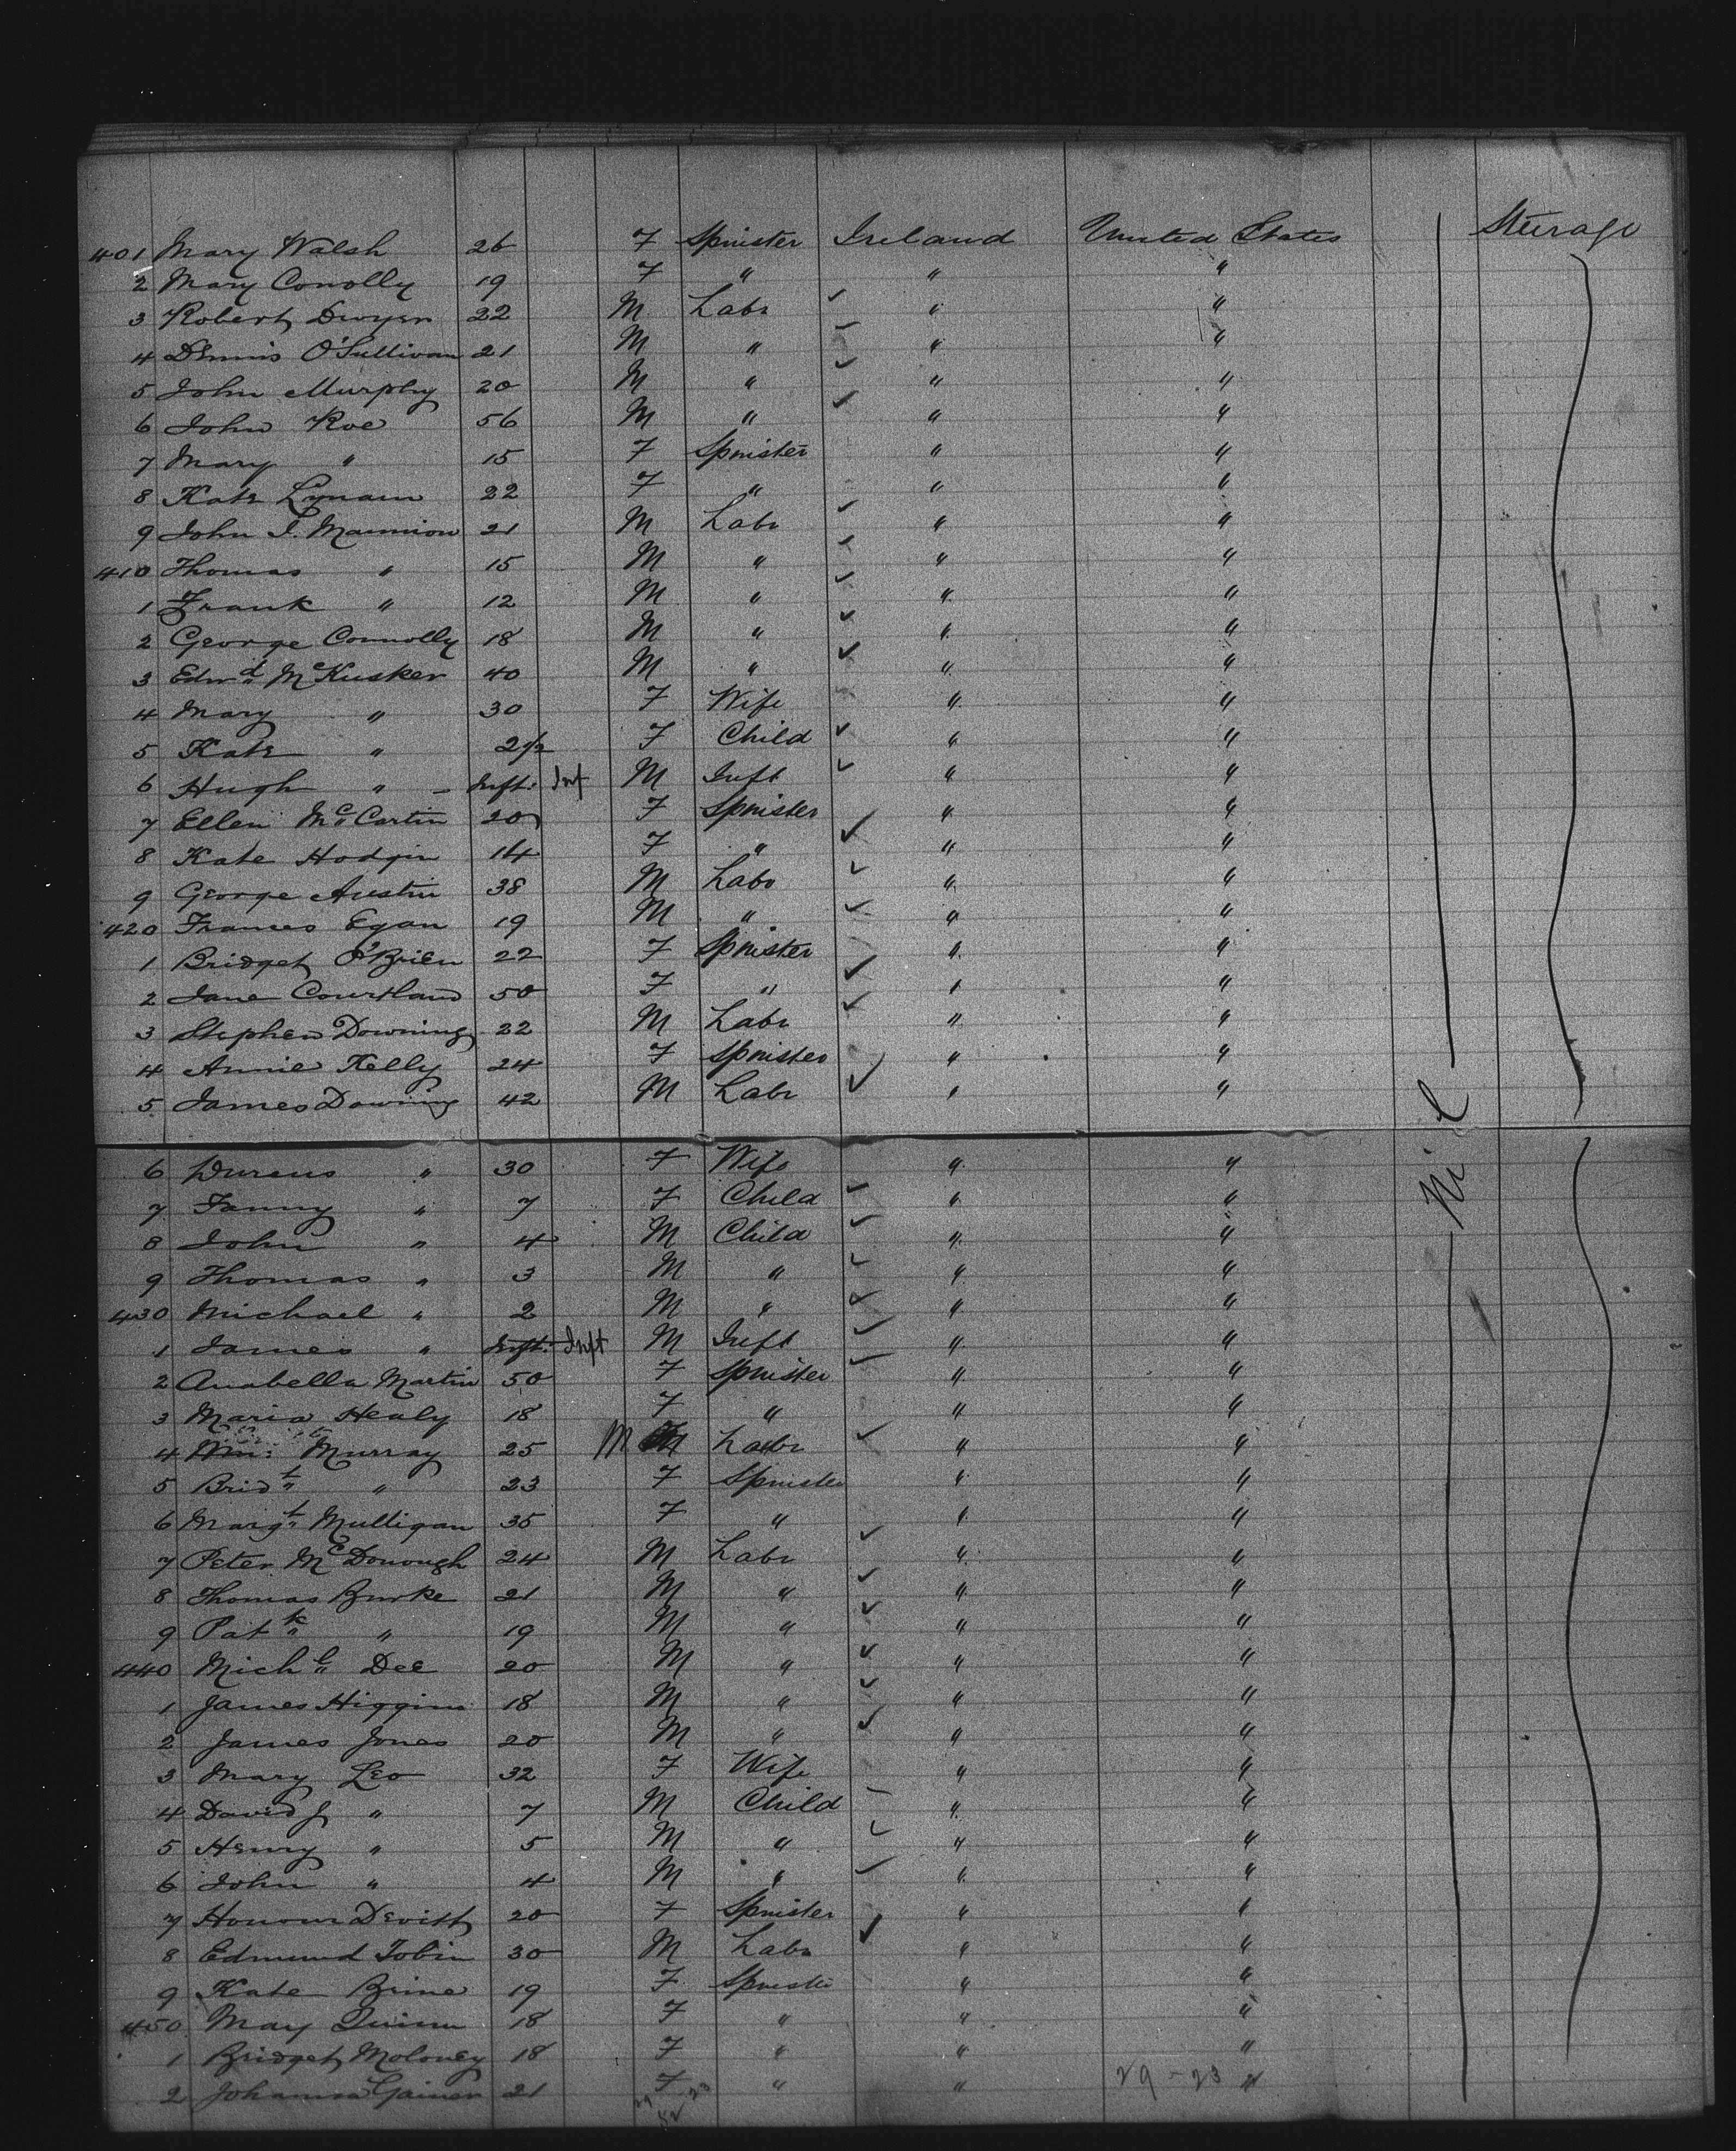 401 Mary Walsh 26 F Spinister Ireland United States Sterage
2 Mary Conolly 19 F " " "
3 Robert Dwyer 22 M Labr " "
4 Dennis O'Sullivan 21 M " " "
5 John Murphy 20 M " " "
6 John Roe 56 M " " "
7 Mary " 15 F Spinister " "
8 Kate Lynam 22 F " " "
9 John J. Mannion 21 M Labr " "
410 Thomas " 15 M " " "
1 Frank " 12 M " " "
2 George Connolly 18 M " " "
3 Edwd McKusker 40 M " " "
4 Mary " 30 F Wife " "
5 Kate " 2 1/2 F Child " "
6 Hugh " - Inft: Inf M Inft " "
7 Ellen McCartin 20 F Spinister " "
8 Kate Hodgin 14 F " " "
9 George Austin 38 M Labr " "
420 Frances Egan 19 M " " "
1 Bridget O'Brien 22 F Spinister " "
2 Jane Courtland 50 F " " "
3 Stephen Downing 22 M Labr " "
4 Annie Kelly 24 F Spinister " "
5 James Downing 42 M Labr " " Nil
6 " 30 F Wife " "
7 Fanny " 7 F Child " "
8 John " 4 M Child " "
9 Thomas " 3 M " " "
430 Michael " 2 M " " "
1 James " Inft: Inft M Inft " "
2 Anabella Martin 50 F Spinister " "
3 Maria Healy 18 F " " "
4 Wm: Murray 25 M Labr " "
5 Bridt " 23 F Spinister " "
6 Margt Mulligan 35 F " " "
7 Peter McDonough 24 M Labr " "
8 Thomas Burke 21 M " " "
9 Patk " 19 M " " "
440 Michl Dee 20 M " " "
1 James Higgins 18 M " " "
2 James Jones 20 M " " "
3 Mary Leo 32 F Wife " "
4 David J " 7 M Child " "
5 Henry " 5 M " " "
6 John " 4 M " " "
7 Honour Devitt 20 F Spinister " "
8 Edmund Tobin 30 M Labr " "
9 Kate Brine 19 F Spinister " "
450 Mary Quinn 18 F " " "
1 Bridget Moloney 18 F " " "
2 Johanna Gainer 21 F " " 29 - 23 "
29 23
52